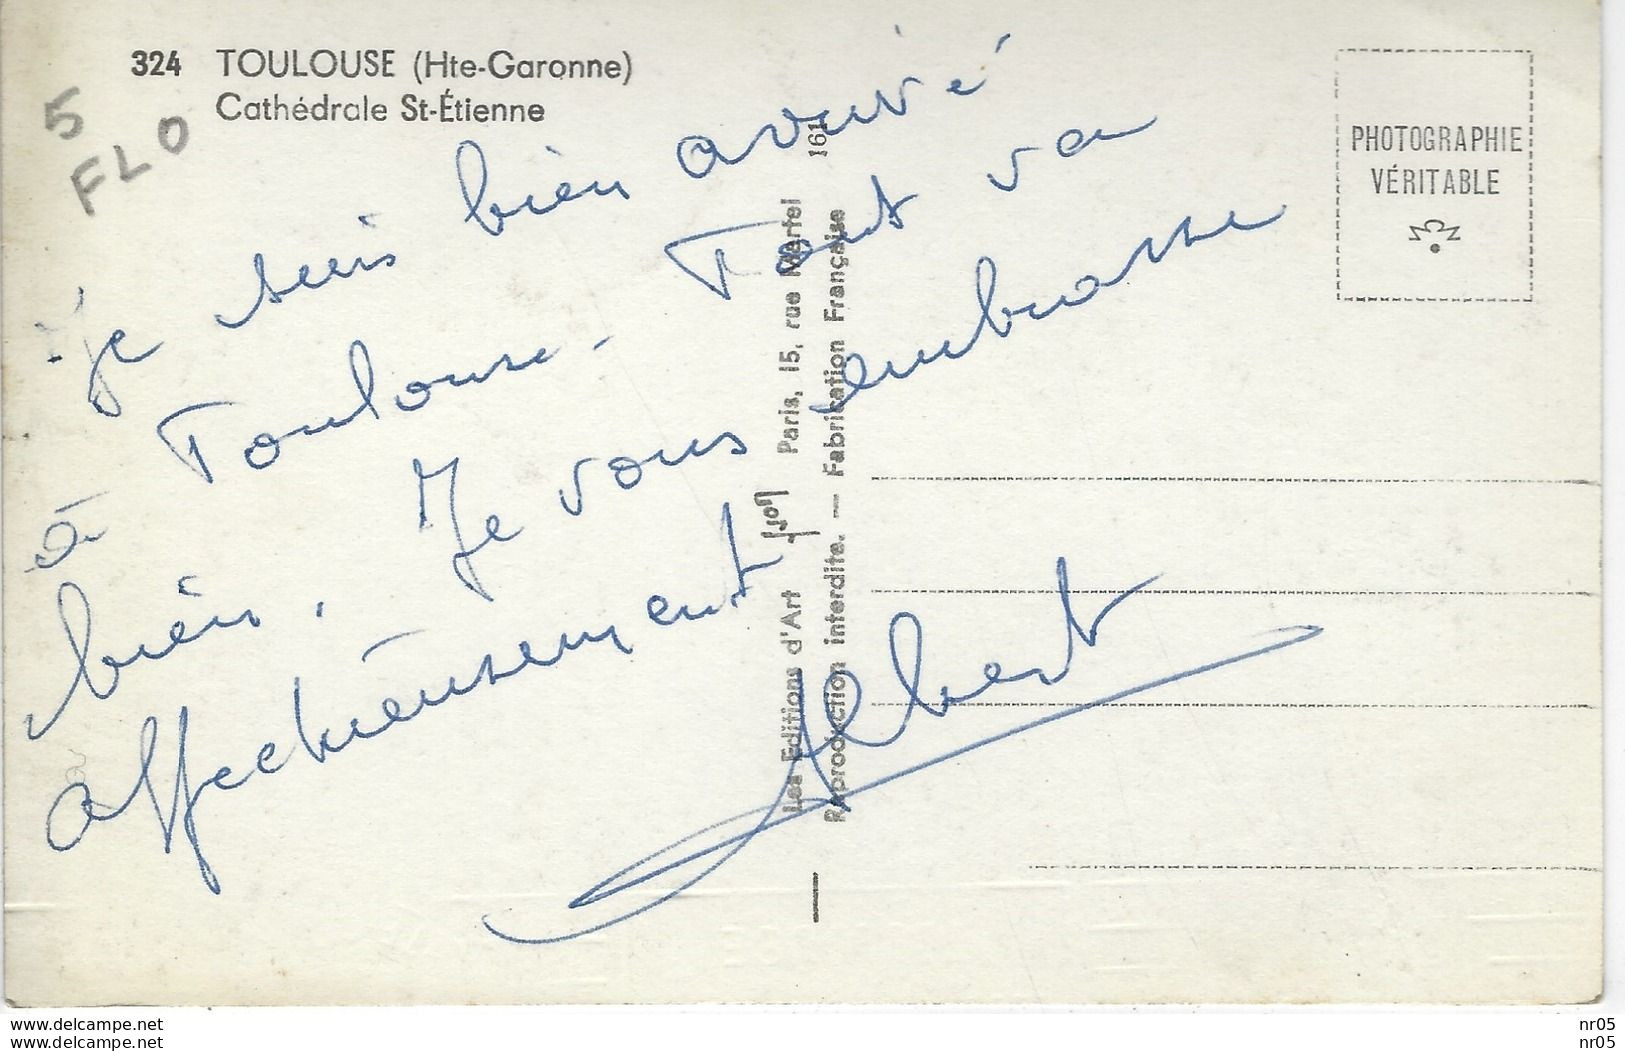 324 TOULOUSE (Hte-Garonne)
Cathédrale St-Étienne
5
FLO
Je suis bien arrivé
à Toulouse. Tout va
bien. Je vous embrasse
affectueusement
Albert
Les Editions d'Art Yvon Paris, 15, rue Martel
Reproduction interdite. — Fabrication Française
161
PHOTOGRAPHIE
VÉRITABLE
www.delcampe.net
www.delcampe.net
nr05
nr05